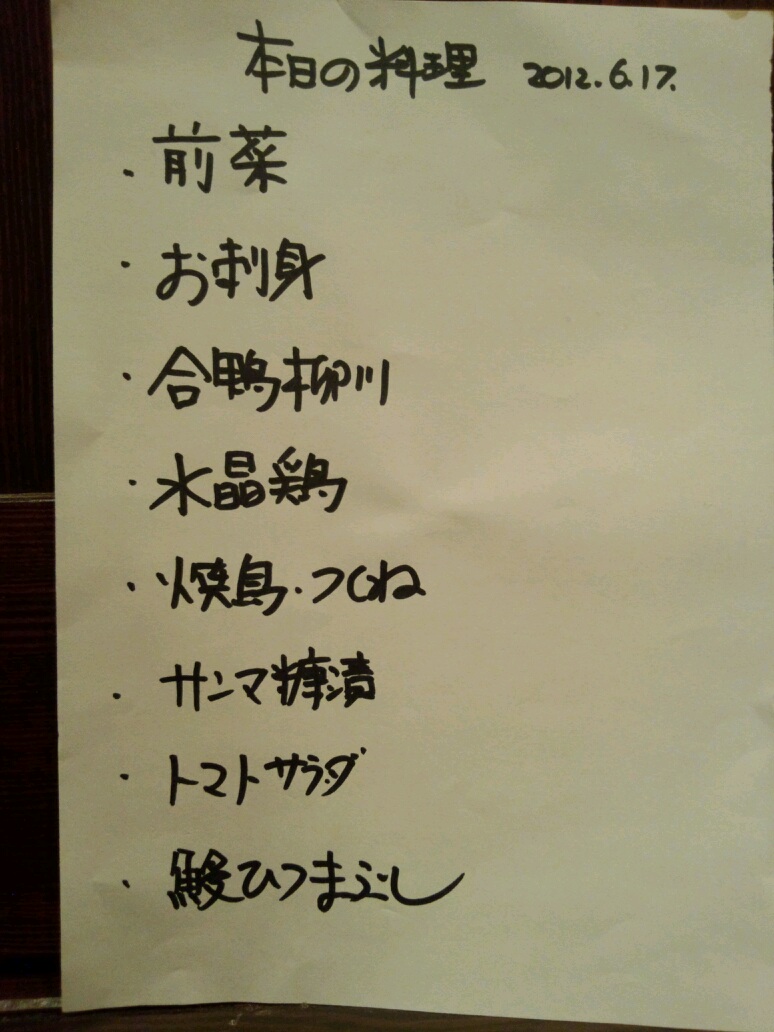 本日の料理 2012.6.17.
・前菜
・お刺身
・合鴨柳川
・水晶鶏
・焼鳥・つくね
・サンマ糠漬
・トマトサラダ
・鰻ひつまぶし